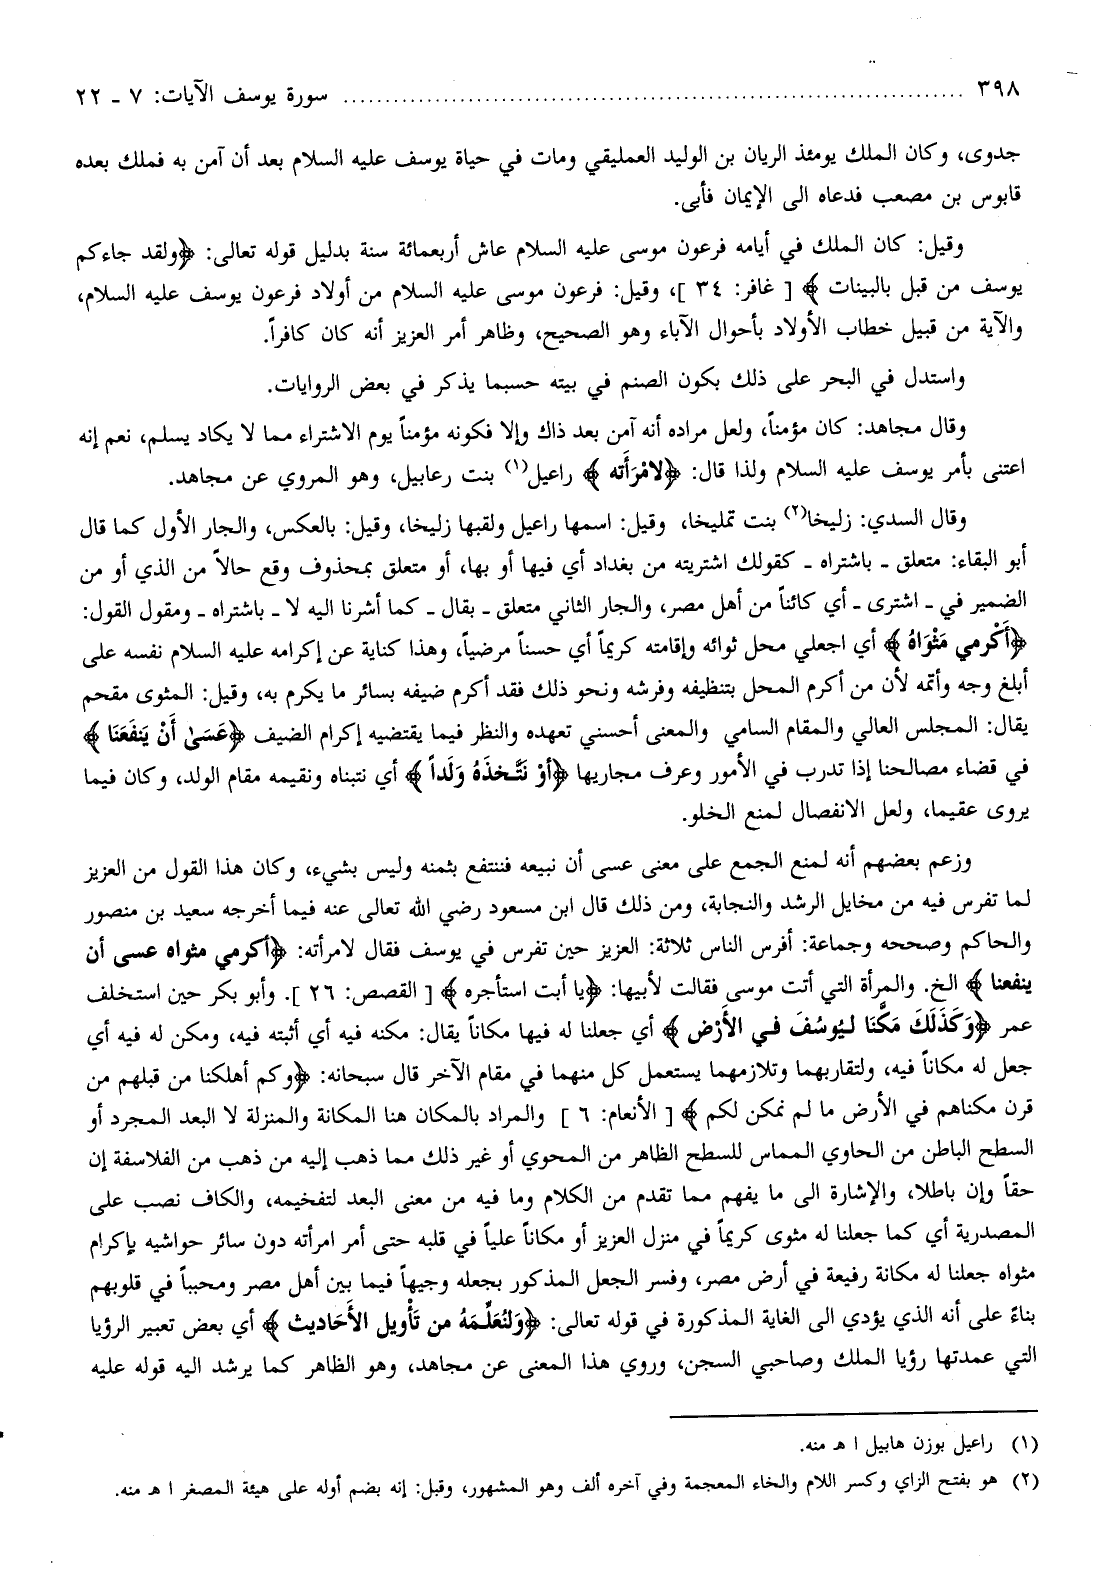 ٣٩٨ ........................................................................ سورة يوسف الآيات: ٧ ـ ٢٢
جدوى، وكان الملك يومئذ الريان بن الوليد العمليقي ومات في حياة يوسف عليه السلام بعد أن آمن به فملك بعده
قابوس بن مصعب فدعاه الى الإيمان فأبى.
وقيل: كان الملك في أيامه فرعون موسى عليه السلام عاش أربعمائة سنة بدليل قوله تعالى: ﴿ولقد جاءكم
يوسف من قبل بالبينات﴾ [ غافر: ٣٤ ]، وقيل: فرعون موسى عليه السلام من أولاد فرعون يوسف عليه السلام،
والآية من قبيل خطاب الأولاد بأحوال الآباء وهو الصحيح، وظاهر أمر العزيز أنه كان كافراً.
واستدل في البحر على ذلك بكون الصنم في بيته حسبما يذكر في بعض الروايات.
وقال مجاهد: كان مؤمناً، ولعل مراده أنه آمن بعد ذاك وإلا فكونه مؤمناً يوم الاشتراء مما لا يكاد يسلم، نعم إنه
اعتنى بأمر يوسف عليه السلام ولذا قال: ﴿لامْرَأَته﴾ راعيل(١) بنت رعابيل، وهو المروي عن مجاهد.
وقال السدي: زليخا(٢) بنت تمليخا، وقيل: اسمها راعيل ولقبها زليخا، وقيل: بالعكس، والجار الأول كما قال
أبو البقاء: متعلق ـ باشتراه ـ كقولك اشتريته من بغداد أي فيها أو بها، أو متعلق بمحذوف وقع حالاً من الذي أو من
الضمير في ـ اشترى ـ أي كائناً من أهل مصر، والجار الثاني متعلق ـ بقال ـ كما أشرنا اليه لا ـ باشتراه ـ ومقول القول:
﴿أَكْرمي مَثْوَاهُ﴾ أي اجعلي محل ثوائه وإقامته كريماً أي حسناً مرضياً، وهذا كناية عن إكرامه عليه السلام نفسه على
أبلغ وجه وأتمه لأن من أكرم المحل بتنظيفه وفرشه ونحو ذلك فقد أكرم ضيفه بسائر ما يكرم به، وقيل: المثوى مقحم
يقال: المجلس العالي والمقام السامي والمعنى أحسني تعهده والنظر فيما يقتضيه إكرام الضيف ﴿عَسَىٰ أَنْ يَنفَعَنَا﴾
في قضاء مصالحنا إذا تدرب في الأمور وعرف مجاريها ﴿أَوْ نَتَّخذَهُ وَلَداً﴾ أي نتبناه ونقيمه مقام الولد، وكان فيما
يروى عقيما، ولعل الانفصال لمنع الخلو.
وزعم بعضهم أنه لمنع الجمع على معنى عسى أن نبيعه فننتفع بثمنه وليس بشيء، وكان هذا القول من العزيز
لما تفرس فيه من مخايل الرشد والنجابة، ومن ذلك قال ابن مسعود رضي الله تعالى عنه فيما أخرجه سعيد بن منصور
والحاكم وصححه وجماعة: أفرس الناس ثلاثة: العزيز حين تفرس في يوسف فقال لامرأته: ﴿أكرمي مثواه عسى أن
ينفعنا﴾ الخ. والمرأة التي أتت موسى فقالت لأبيها: ﴿يا أبت استأجره﴾ [ القصص: ٢٦ ]. وأبو بكر حين استخلف
عمر ﴿وَكَذَلَكَ مَكَّنَا ليُوسُفَ في الأَرْض﴾ أي جعلنا له فيها مكاناً يقال: مكنه فيه أي أثبته فيه، ومكن له فيه أي
جعل له مكاناً فيه، ولتقاربهما وتلازمهما يستعمل كل منهما في مقام الآخر قال سبحانه: ﴿وكم أهلكنا من قبلهم من
قرن مكناهم في الأرض ما لم نمكن لكم﴾ [ الأنعام: ٦ ] والمراد بالمكان هنا المكانة والمنزلة لا البعد المجرد أو
السطح الباطن من الحاوي المماس للسطح الظاهر من المحوي أو غير ذلك مما ذهب إليه من ذهب من الفلاسفة إن
حقاً وإن باطلا، والإشارة الى ما يفهم مما تقدم من الكلام وما فيه من معنى البعد لتفخيمه، والكاف نصب على
المصدرية أي كما جعلنا له مثوى كريماً في منزل العزيز أو مكاناً علياً في قلبه حتى أمر امرأته دون سائر حواشيه بإكرام
مثواه جعلنا له مكانة رفيعة في أرض مصر، وفسر الجعل المذكور بجعله وجيهاً فيما بين أهل مصر ومحبباً في قلوبهم
بناءً على أنه الذي يؤدي الى الغاية المذكورة في قوله تعالى: ﴿وَلنُعَلِّمَهُ من تَأْويل الأَحَاديث﴾ أي بعض تعبير الرؤيا
التي عمدتها رؤيا الملك وصاحبي السجن، وروي هذا المعنى عن مجاهد، وهو الظاهر كما يرشد اليه قوله عليه
(١) راعيل بوزن هابيل ا هـ منه.
(٢) هو بفتح الزاي وكسر اللام والخاء المعجمة وفي آخره ألف وهو المشهور، وقيل: إنه بضم أوله على هيئة المصغر ا هـ منه.